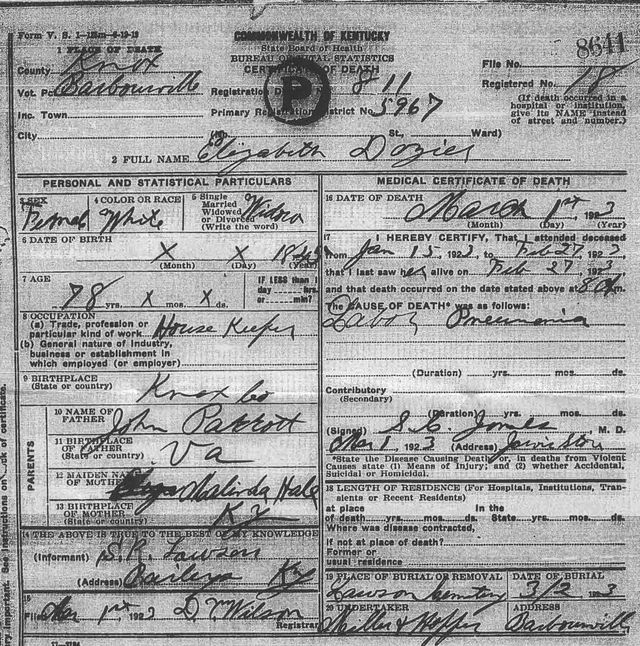 Form V. S. 1-125m-6-19-19
COMMONWEALTH OF KENTUCKY
State Board of Health
BUREAU OF VITAL STATISTICS
CERTIFICATE OF DEATH
8641
1 PLACE OF DEATH
County Knox
Vot. Pct Barbourville
Inc. Town
City
Registration District No 811
Primary Registration District No 5967
File No.
Registered No. 18
(If death occurred in a
hospital or institution,
give its NAME instead
of street and number.)
P
(No. St., Ward)
2 FULL NAME Elizabeth Dozier
PERSONAL AND STATISTICAL PARTICULARS
3 SEX Female
4 COLOR OR RACE White
5 Single
Married
Widowed
or Divorced
(Write the word)
6 DATE OF BIRTH
X X 1845
(Month) (Day) (Year)
7 AGE
78 yrs. X mos. X ds.
IF LESS than 1
day hrs.
or min?
8 OCCUPATION
(a) Trade, profession or
particular kind of work House Keeper
(b) General nature of industry,
business or establishment in
which employed (or employer)
9 BIRTHPLACE
(State or country) Knox Co
PARENTS
10 NAME OF
FATHER John Parrott
11 BIRTHPLACE
OF FATHER
(State or country) Va
12 MAIDEN NAME
OF MOTHER Malinda Hale
13 BIRTHPLACE
OF MOTHER
(State or country) Ky
14 THE ABOVE IS TRUE TO THE BEST OF MY KNOWLEDGE
(Informant) S.R. Lawson
(Address) Baileys Ky
15
Filed Mar 1st 1923 D. Y. Wilson
Registrar
MEDICAL CERTIFICATE OF DEATH
16 DATE OF DEATH
March 1st, 1923
(Month) (Day) (Year)
17 I HEREBY CERTIFY, That I attended deceased
from Jan 15, 1923, to Feb 27, 1923
that I last saw her alive on Feb 27, 1923
and that death occurred on the date stated above at 8 m.
The CAUSE OF DEATH* was as follows:
Labor Pneumonia
(Duration) yrs. mos. ds.
Contributory
(Secondary)
(Duration) yrs. mos. ds.
(Signed) S. C. Jones, M. D.
Mar 1, 1923 (Address) Jarvis Store
*State the Disease Causing Death, or, in deaths from Violent
Causes state (1) Means of Injury; and (2) whether Accidental,
Suicidal or Homicidal.
18 LENGTH OF RESIDENCE (For Hospitals, Institutions, Tran-
sients or Recent Residents)
at place In the
of death yrs. mos. ds. State yrs. mos. ds.
Where was disease contracted,
if not at place of death?
Former or
usual residence
19 PLACE OF BURIAL OR REMOVAL
Lawson Cemetery
DATE OF BURIAL
3/2 1923
20 UNDERTAKER
Miller & Hopper
ADDRESS
Barbourvill